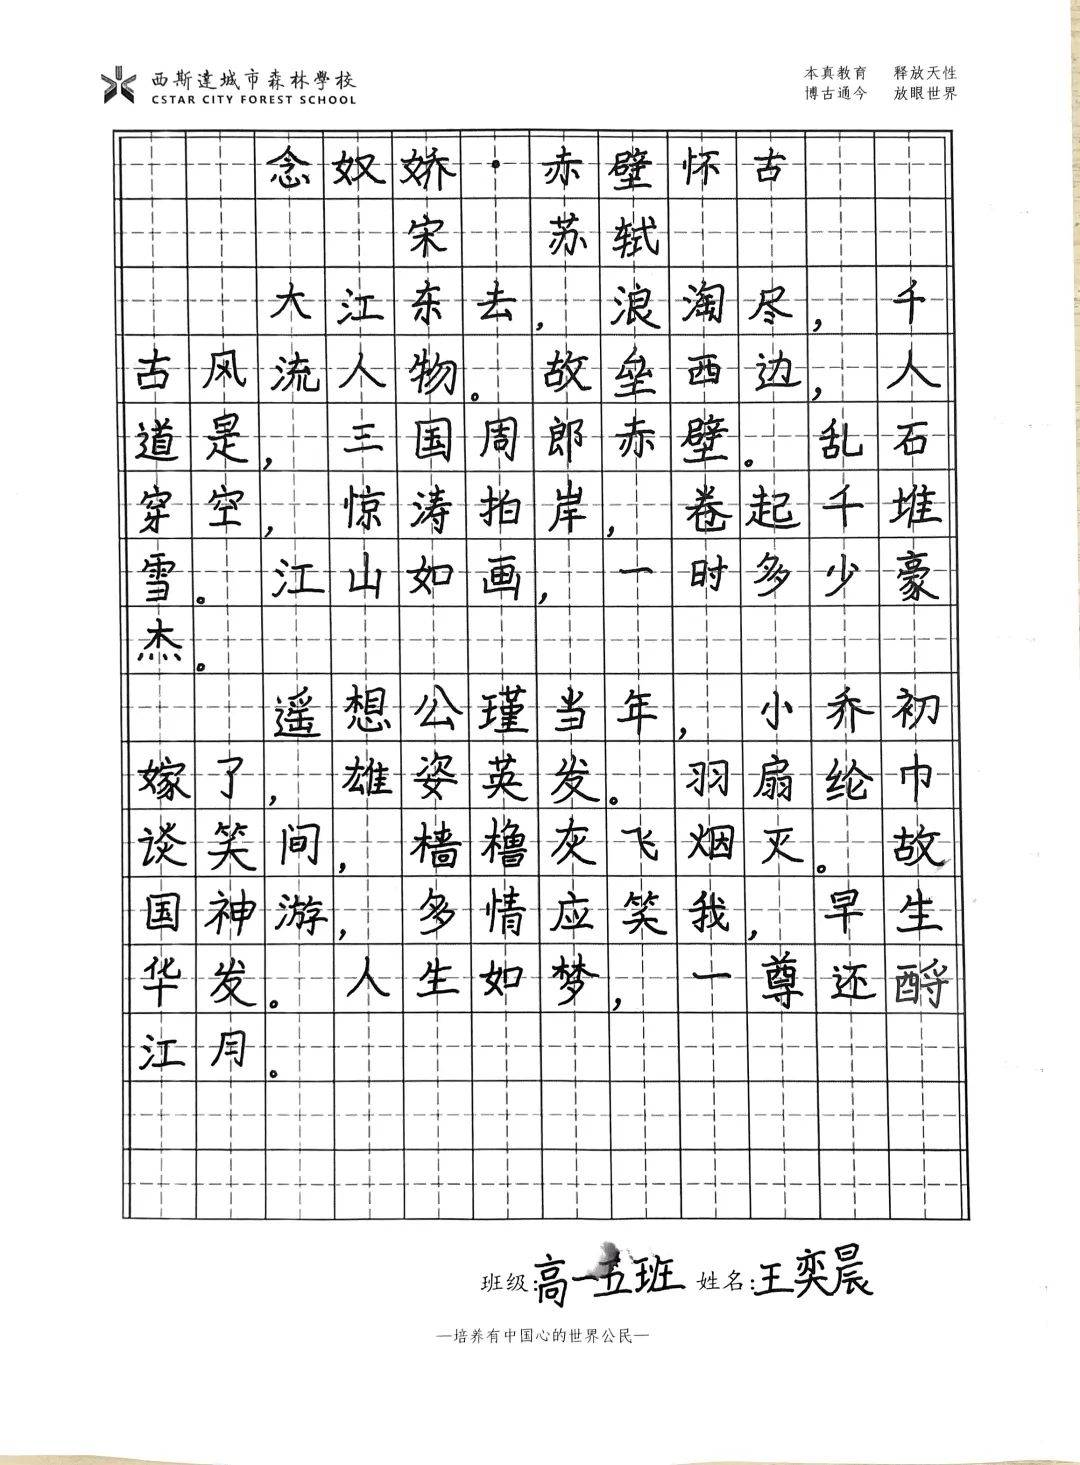 西斯達城市森林學校
CSTAR CITY FOREST SCHOOL
本真教育 释放天性
博古通今 放眼世界
念奴娇·赤壁怀古
宋 苏轼
大江东去，浪淘尽，千
古风流人物。故垒西边，人
道是，三国周郎赤壁。乱石
穿空，惊涛拍岸，卷起千堆
雪。江山如画，一时多少豪
杰。
遥想公瑾当年，小乔初
嫁了，雄姿英发。羽扇纶巾
谈笑间，樯橹灰飞烟灭。故
国神游，多情应笑我，早生
华发。人生如梦，一尊还酹
江月。
班级:高一五班 姓名:王奕晨
—培养有中国心的世界公民—